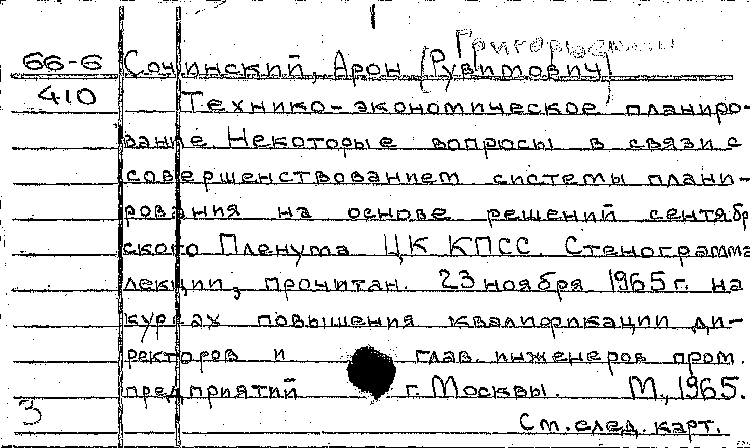 Григорьевич
66-6 Сочинский, Арон (Рувимович)
410 Технико-экономическое планиро-
вание. Некоторые вопросы в связи с
совершенствованием системы плани-
рования на основе решений сентябр
ского Пленума ЦК КПСС. Стенограмма
лекции, прочитан. 23 ноября 1965 г. на
курсах повышения квалификации ди-
ректоров и глав. инженеров пром.
предприятий г. Москвы. М., 1965.
3 См. след. карт.